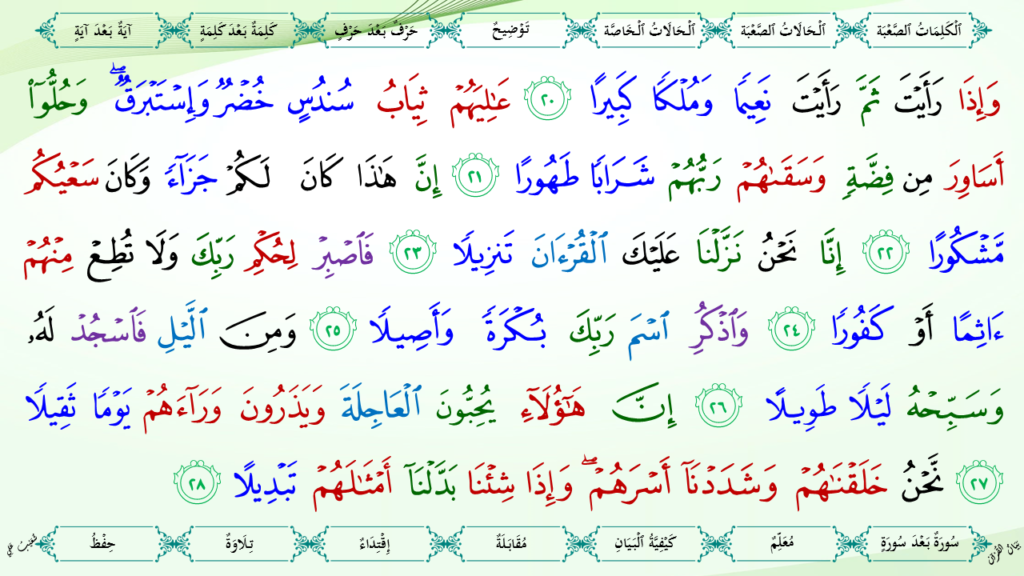 اَلْكَلِمَاتُ الصَّعْبَة اَلْحَالَاتُ الصَّعْبَة اَلْحَالَاتُ الْخَاصَّة تَوْضِيحٌ حَرْفٌ بَعْدَ حَرْفٍ كَلِمَةٌ بَعْدَ كَلِمَةٍ آيَةٌ بَعْدَ آيَةٍ
وَإِذَا رَأَيْتَ ثَمَّ رَأَيْتَ نَعِيمًا وَمُلْكًا كَبِيرًا ٢٠ عَٰلِيَهُمْ ثِيَابُ سُندُسٍ خُضْرٌ وَإِسْتَبْرَقٌۖ وَحُلُّوٓا۟
أَسَاوِرَ مِن فِضَّةٍ وَسَقَىٰهُمْ رَبُّهُمْ شَرَابًا طَهُورًا ٢١ إِنَّ هَٰذَا كَانَ لَكُمْ جَزَآءً وَكَانَ سَعْيُكُم
مَّشْكُورًا ٢٢ إِنَّا نَحْنُ نَزَّلْنَا عَلَيْكَ ٱلْقُرْءَانَ تَنزِيلًا ٢٣ فَٱصْبِرْ لِحُكْمِ رَبِّكَ وَلَا تُطِعْ مِنْهُمْ
ءَاثِمًا أَوْ كَفُورًا ٢٤ وَٱذْكُرِ ٱسْمَ رَبِّكَ بُكْرَةً وَأَصِيلًا ٢٥ وَمِنَ ٱلَّيْلِ فَٱسْجُدْ لَهُۥ
وَسَبِّحْهُ لَيْلًا طَوِيلًا ٢٦ إِنَّ هَٰٓؤُلَآءِ يُحِبُّونَ ٱلْعَاجِلَةَ وَيَذَرُونَ وَرَآءَهُمْ يَوْمًا ثَقِيلًا
٢٧ نَّحْنُ خَلَقْنَٰهُمْ وَشَدَدْنَآ أَسْرَهُمْۖ وَإِذَا شِئْنَا بَدَّلْنَآ أَمْثَٰلَهُمْ تَبْدِيلًا ٢٨
سُورَةٌ بَعْدَ سُورَةٍ مُعَلِّمٌ كَيْفِيَّةُ الْبَيَانِ مُقَابَلَةٌ إِقْتِدَاءٌ تِلَاوَةٌ حِفْظٌ